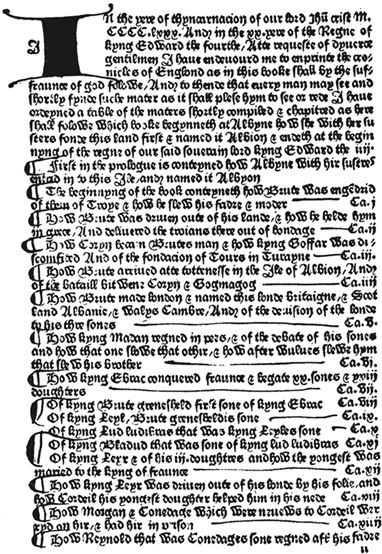 IN the yere of thyncarnacion of our lord Jhū crist M.
CCCC.lxxx. And in the xx.yere of the Regne of
kyng Edward the fourthe, Atte requeste of dyuerce
gentilmen I haue endeuourd me to enprinte the cro-
nicles of Englond as in this booke shall by the suf-
fraunce of god folowe, And to thende that euery man may see and
shortly fynde suche mater as it shall plese hym to see or rede I haue
ordeyned a table of the maters shortly compiled & chapitred as here
shall folowe which booke begynneth at Albyne how she with her su
sters fonde this land first & named it Albion & endeth at the begin
nyng of the regne of our said souerain lord kyng Edward the iiij.
First in the prologue is conteyned how Albyne with hir susters
entrid in to this Ile, and named it Albyon
The beginnyng of the book conteyneth how Brute was engēdrid
of them of Troye & how he slew his fadre & moder Ca.j
How Brute was driuen oute of his lande, & how he helde hym
in grece, And deliuered the troians there out of bondage Ca.ij
How Coryn bcam Brutes man & how kyng Goffar was di-
scomfited And of the fondacion of Tours in Turayne Ca.iij.
How Brute arriued atte totteneſſe in the Ile of Albion, And
of the bataill bitwene Coryn & Gogmagog Ca.iiij
How Brute made london & named this londe Britaigne, & Scot
land Albanie, & Walys Cambre, And of the deuision of the londe
to his thre sones Ca.v.
How kyng Madan regned in pees, & of the debate of his sones
and how that one slewe that othir, & how after wulues slewe hym
that slew his brother Ca.vj.
How kyng Ebrac conquered fraunce & begate xx.sones & xxiij
doughters Ca.vij
Of kyng Brute grenesheld first sone of kyng Ebrac Ca.viij
Of kyng Leyl, Brute grenesheldis sone Ca.ix.
Of kyng Lud ludibras that was kyng Leyles sone Ca.x
Of kyng Bladud that was sone of kyng lud ludibras Ca.xj
Of kyng Leyr & of his iij.doughtres and how the yongest was
maried to the kyng of fraunce Ca.xij
How kyng Leyr was driuen oute of his londe by his folie, and
how Cordeil his yongest doughter helped him in his nede Ca.xiij
How Morgan & Conedage which were nyews to Cordeil wer
reyd on hir, & had hir in prison Ca.xiiij
How Reynold that was Conedages sone regned aft his fadre